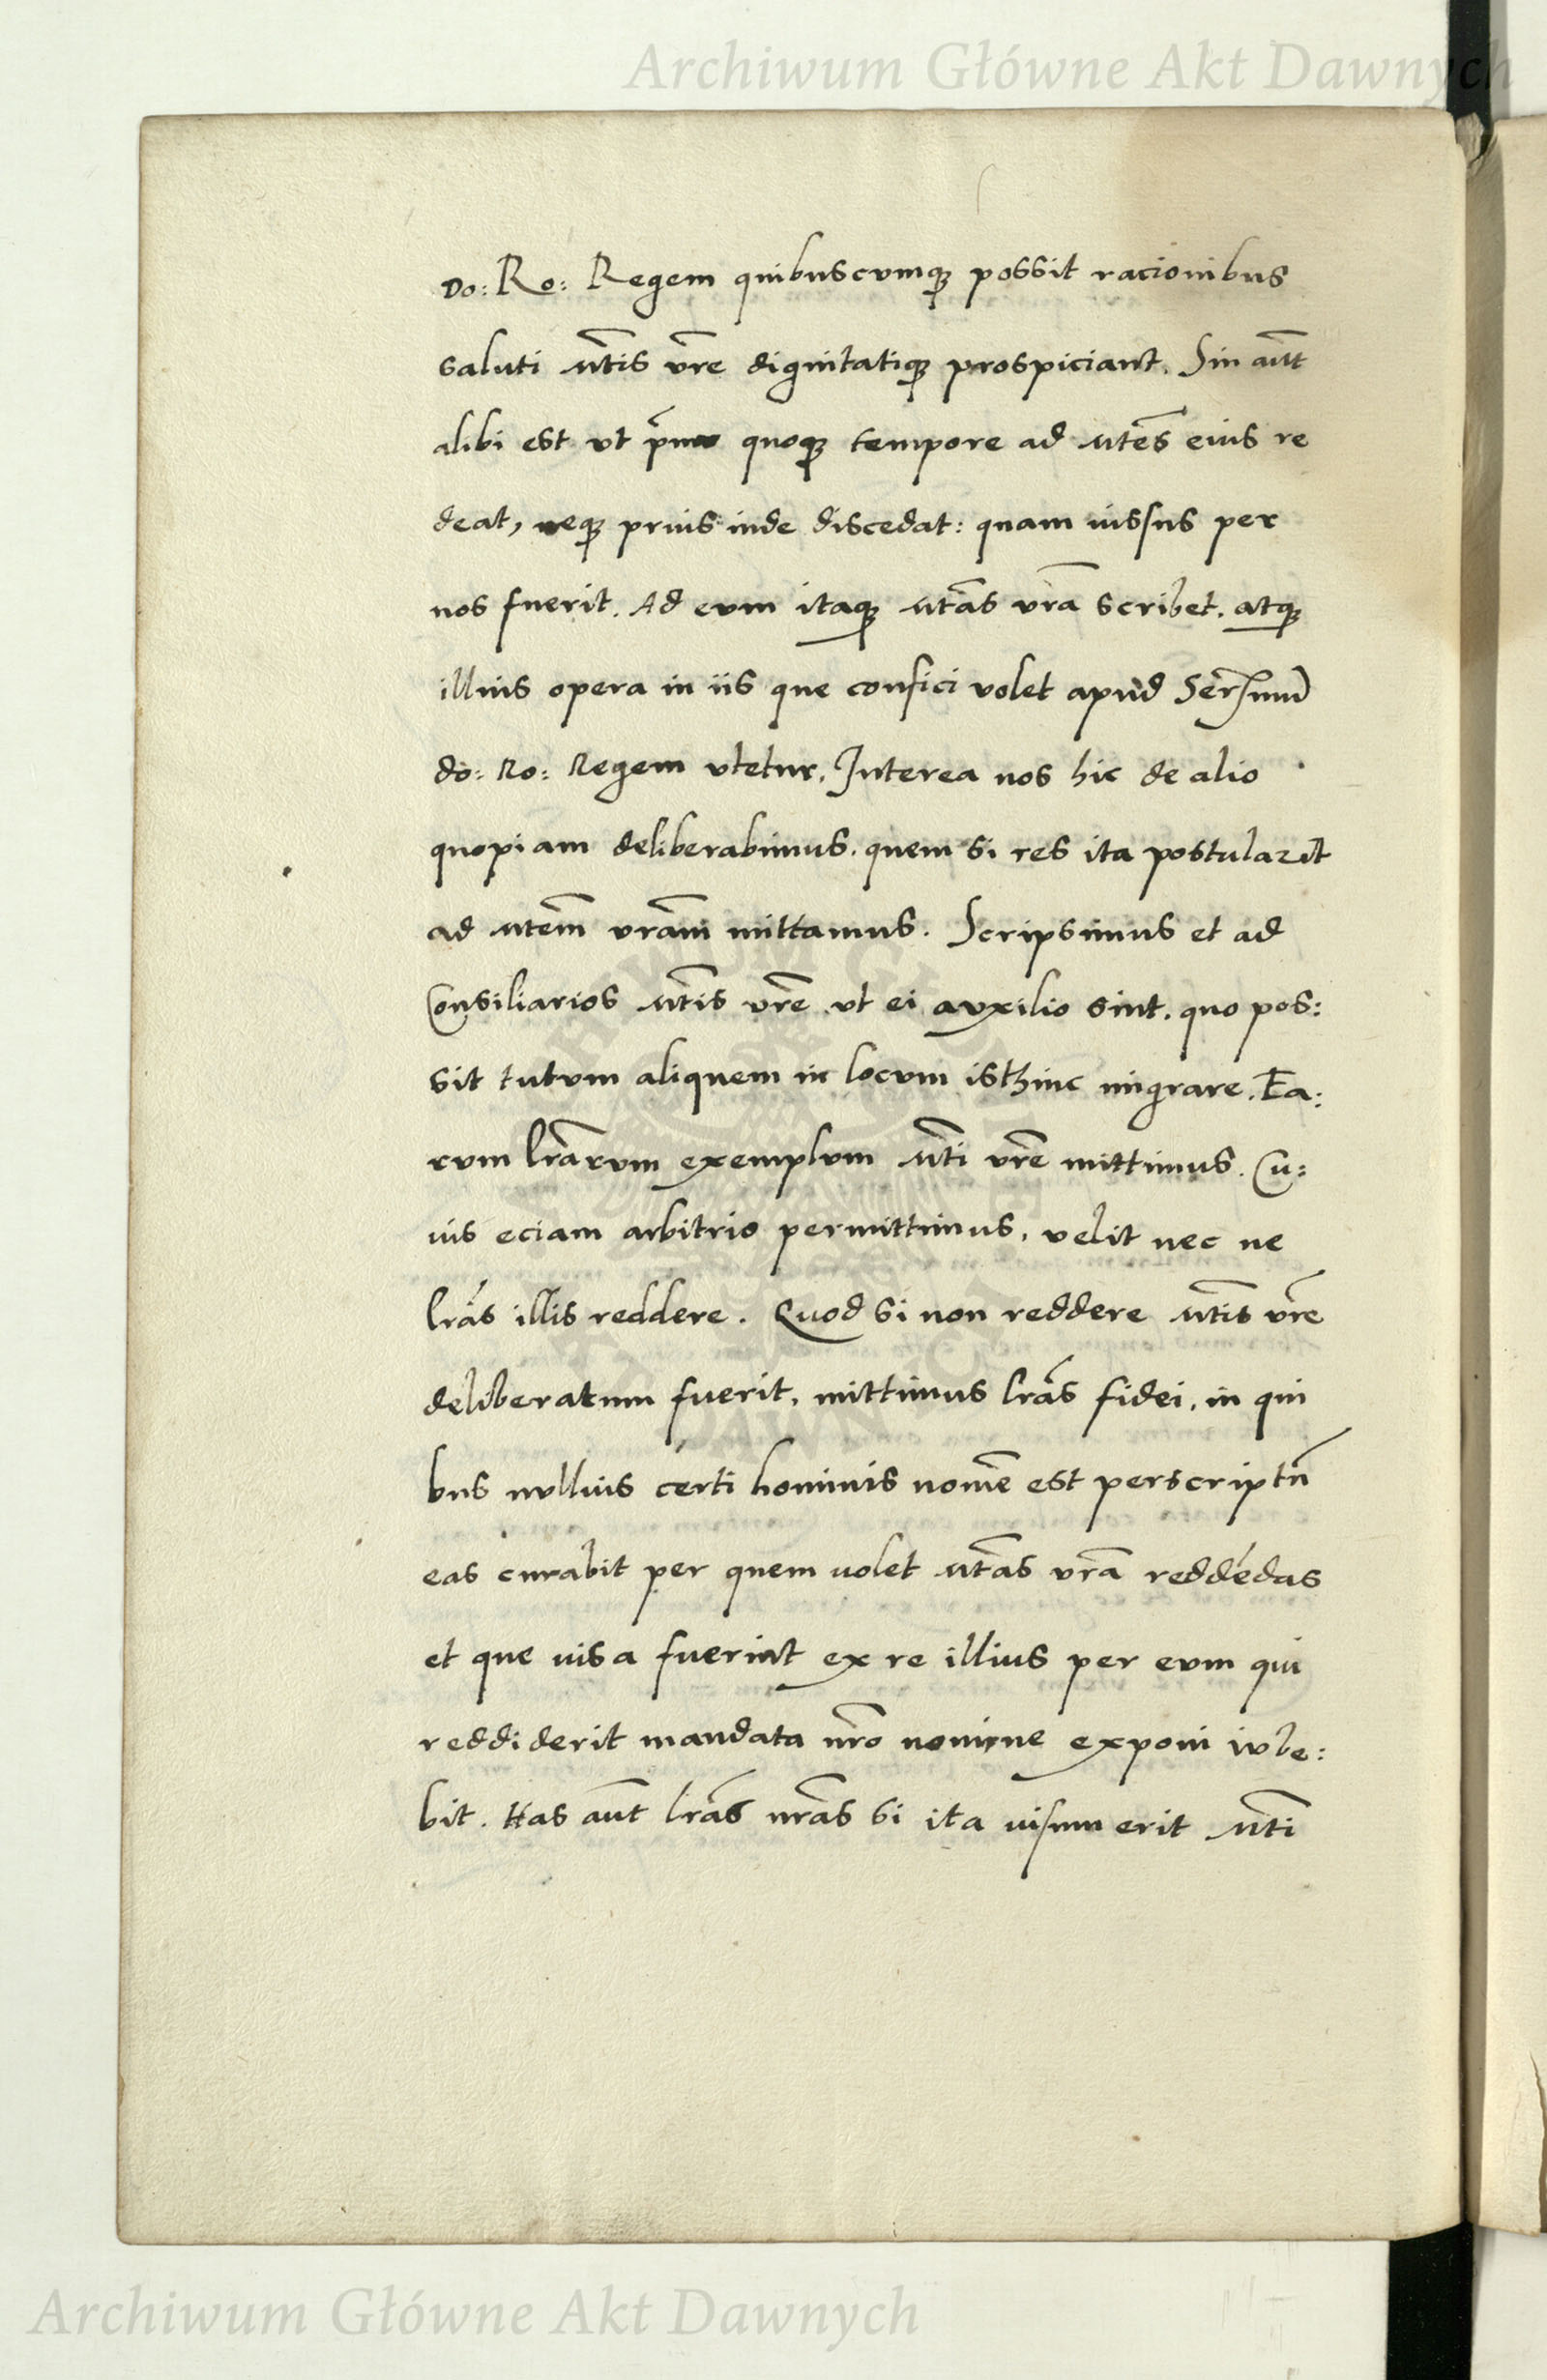 Archiwum Główne Akt Dawnych
Do: Ro: Regem quibuscvmq; possit racionibus
saluti Mtis vre dignitatiq; prospiciant. Sin aut
alibi est vt primo quoq; tempore ad Mtes eius re
deat, neq; prius inde discedat: quam iussus per
nos fuerit. Ad evm itaq; Mtas vra scribet. atq;
illius opera in iis que confici volet apud Sermum
do: Ro: Regem vtetur. Interea nos hic de alio
quopiam deliberabimus. quem si res ita postularit
ad Mtem vram mittamus. Scripsimus et ad
Consiliarios Mtis vre vt ei avxilio sint. quo pos:
sit tutvm aliquem in locvm isthinc migrare. Ea:
rvm lrarvm exemplvm Mti vre mittimus. Cu:
ius eciam arbitrio permittimus, velit nec ne
lras illis reddere. Quod si non reddere Mtis vre
deliberatum fuerit, mittimus lras fidei, in qui
bus nvllius certi hominis nome est perscriptu
eas curabit per quem volet Mtas vra reddedas
et que uisa fuerint ex re illius per evm qui
reddiderit mandata nro nomine exponi ivbe:
bit. Has aut lras nras si ita uisum erit Mti
Archiwum Główne Akt Dawnych